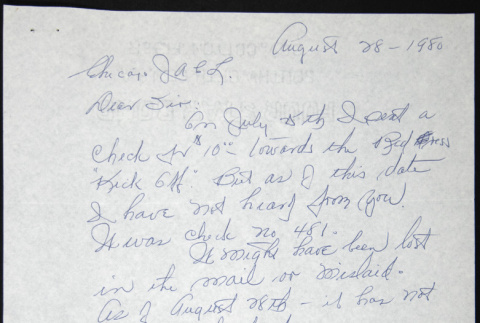 August 28 - 1980
Chicago JACL
Dear Sir:
On July 8th I sent a
check for $10.00 towards the Red
"Kick Off". But as of this date
I have not heard from you.
It was check no. 481.
It might have been lost
in the mail or mislaid.
As of August 28th - it has not